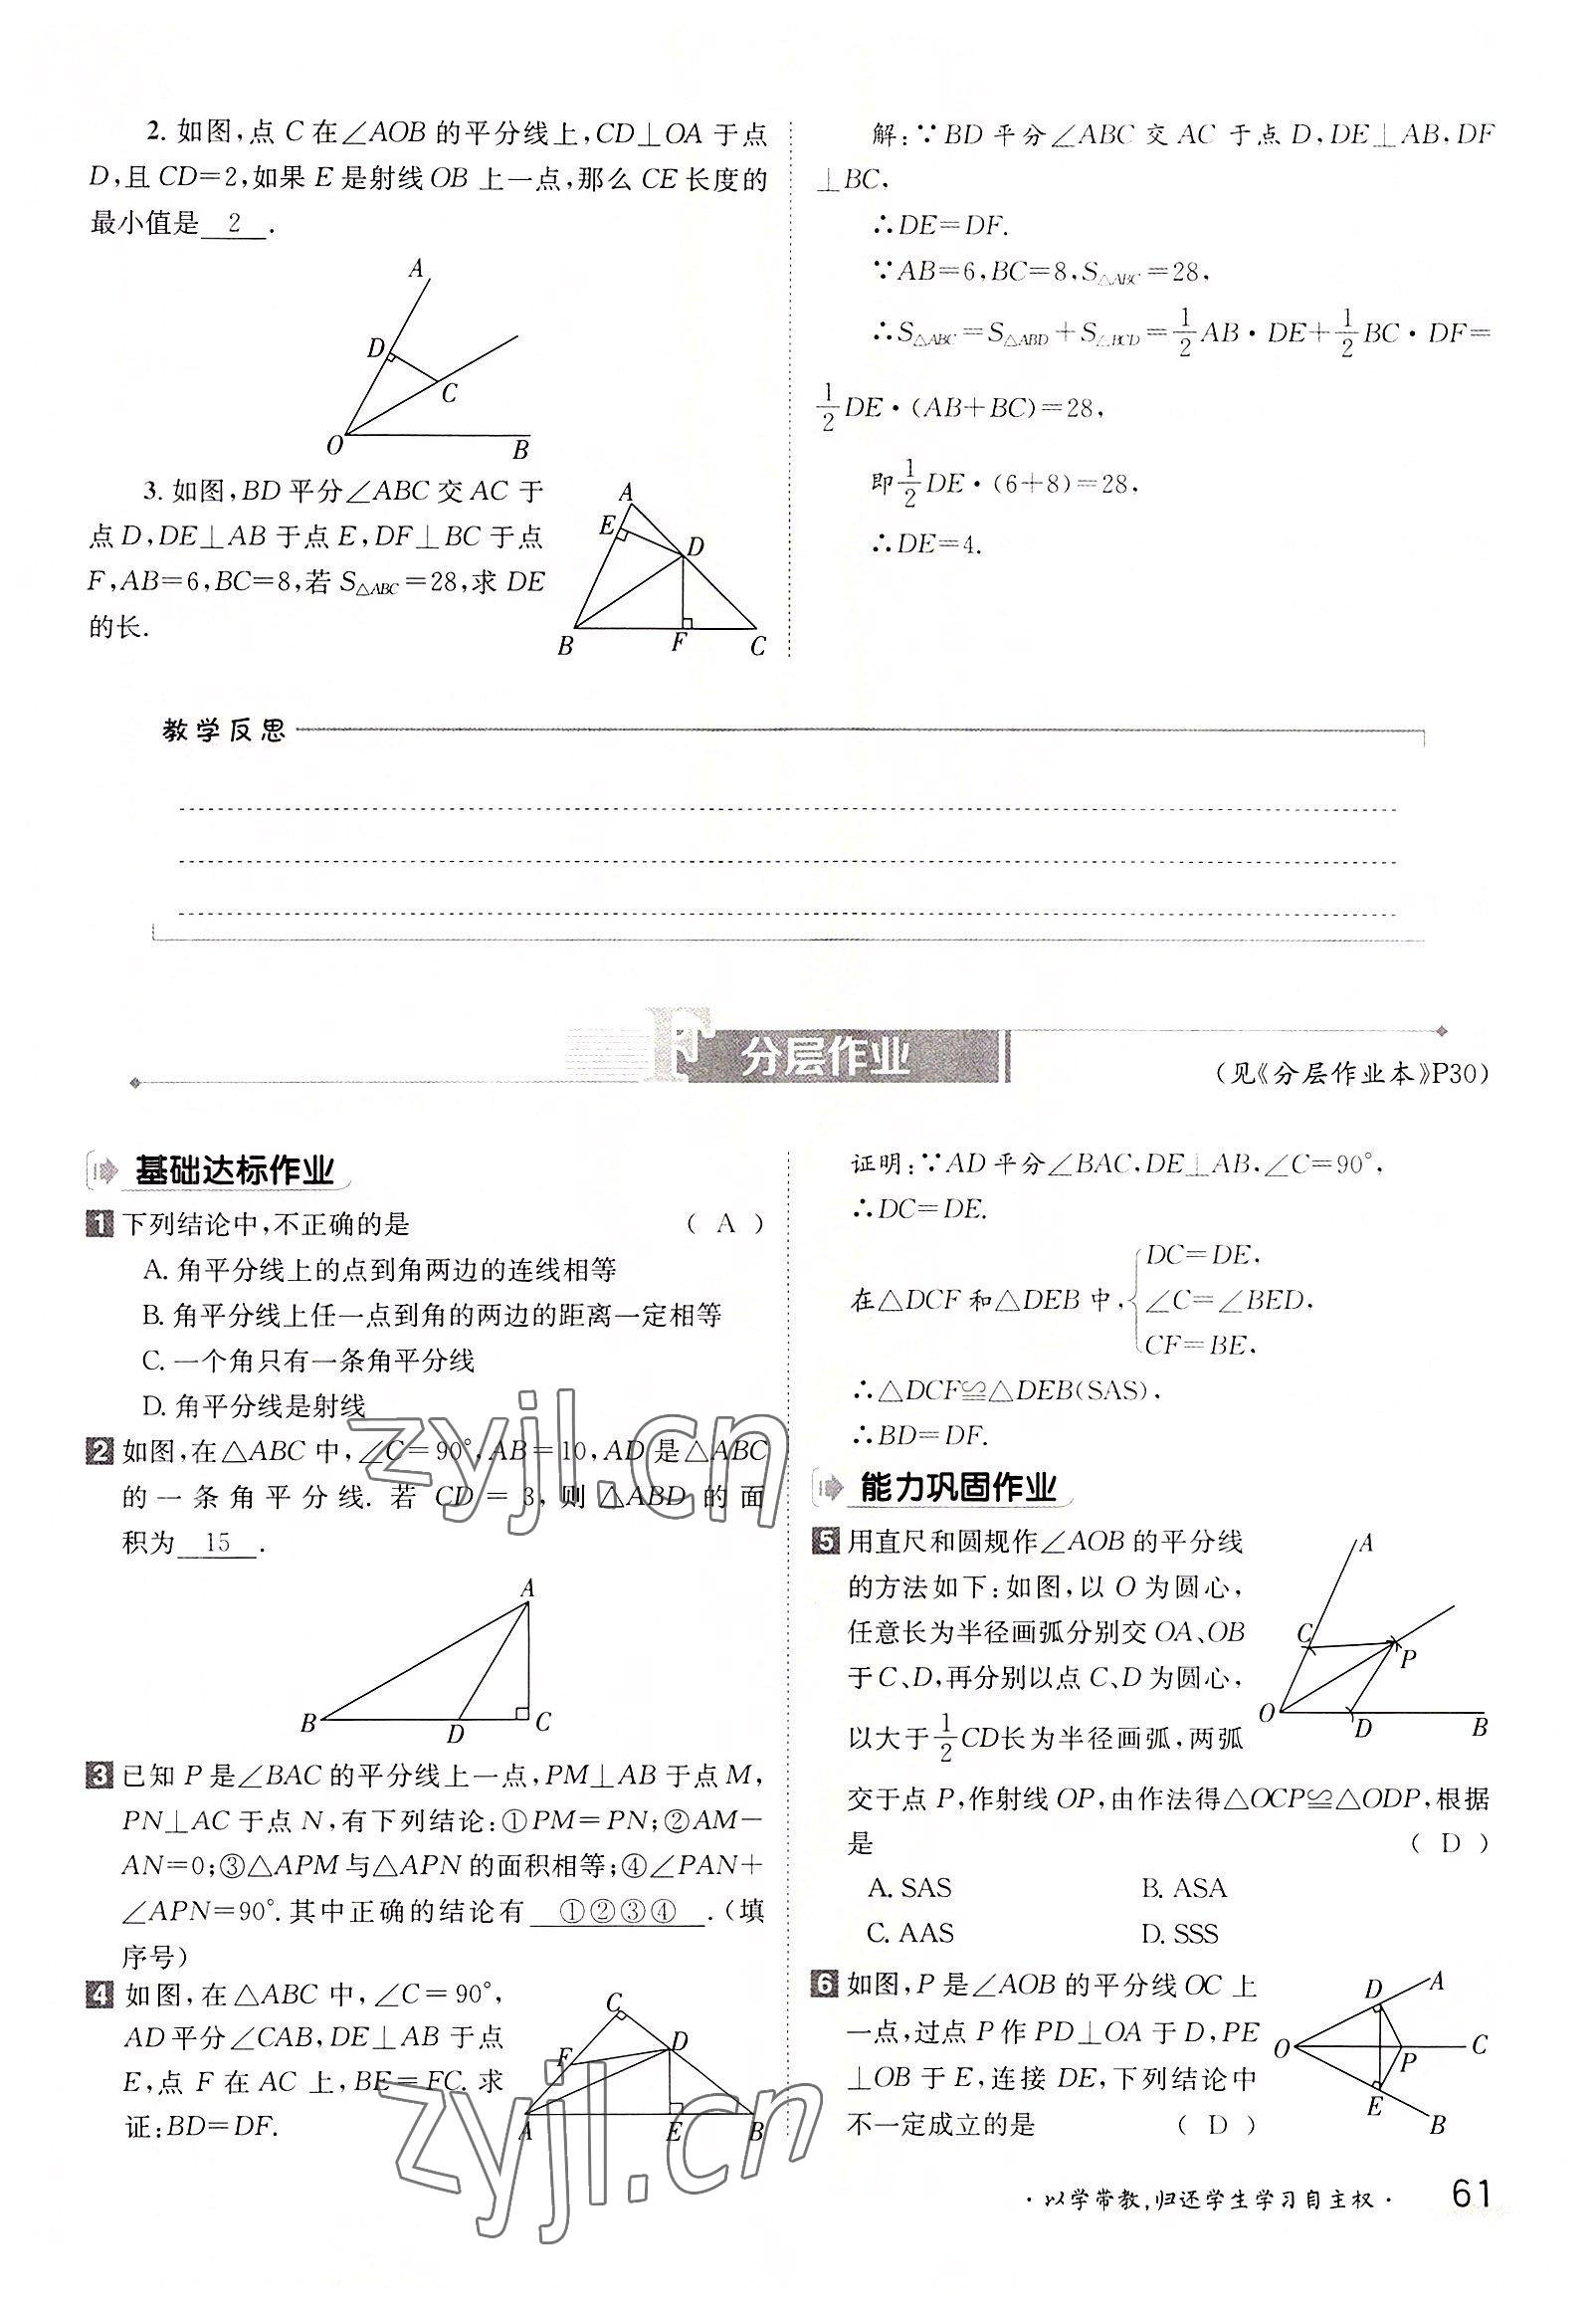 2. 如图,点 C 在∠AOB 的平分线上,CD⊥OA 于点
D,且 CD=2,如果 E 是射线 OB 上一点,那么 CE 长度的
最小值是 2 .
A
D
C
O
B
3. 如图,BD 平分∠ABC 交 AC 于
点 D,DE⊥AB 于点 E,DF⊥BC 于点
F,AB=6,BC=8,若 S△ABC=28,求 DE
的长.
A
E
D
B
F
C
解:∵BD 平分∠ABC 交 AC 于点 D,DE⊥AB,DF
⊥BC,
∴DE=DF.
∵AB=6,BC=8,S△ABC=28,
∴S△ABC=S△ABD+S△BCD=1/2AB·DE+1/2BC·DF=
1/2DE·(AB+BC)=28,
即1/2DE·(6+8)=28,
∴DE=4.
教学反思
F 分层作业
(见《分层作业本》P30)
基础达标作业
1 下列结论中,不正确的是 ( A )
A. 角平分线上的点到角两边的连线相等
B. 角平分线上任一点到角的两边的距离一定相等
C. 一个角只有一条角平分线
D. 角平分线是射线
2 如图,在△ABC 中,∠C=90°,AB=10,AD 是△ABC
的一条角平分线. 若 CD=3,则△ABD 的面
积为 15 .
A
B
D
C
3 已知 P 是∠BAC 的平分线上一点,PM⊥AB 于点 M,
PN⊥AC 于点 N,有下列结论:①PM=PN;②AM-
AN=0;③△APM 与△APN 的面积相等;④∠PAN+
∠APN=90°.其中正确的结论有 ①②③④ .(填
序号)
4 如图,在△ABC 中,∠C=90°,
AD 平分∠CAB,DE⊥AB 于点
E,点 F 在 AC 上,BE=FC. 求
证:BD=DF.
C
D
F
A
E
B
证明:∵AD 平分∠BAC,DE⊥AB,∠C=90°,
∴DC=DE.
DC=DE,
在△DCF 和△DEB 中,{∠C=∠BED,
CF=BE,
∴△DCF≌△DEB(SAS),
∴BD=DF.
能力巩固作业
5 用直尺和圆规作∠AOB 的平分线
的方法如下:如图,以 O 为圆心,
任意长为半径画弧分别交 OA、OB
于 C、D,再分别以点 C、D 为圆心,
以大于1/2CD长为半径画弧,两弧
交于点 P,作射线 OP,由作法得△OCP≌△ODP,根据
是 ( D )
A. SAS B. ASA
C. AAS D. SSS
A
C
P
O
D
B
6 如图,P 是∠AOB 的平分线 OC 上
一点,过点 P 作 PD⊥OA 于 D,PE
⊥OB 于 E,连接 DE,下列结论中
不一定成立的是 ( D )
D
A
O
P
C
E
B
zyjl.cn
zyjl.cn
·以学带教,归还学生学习自主权· 61